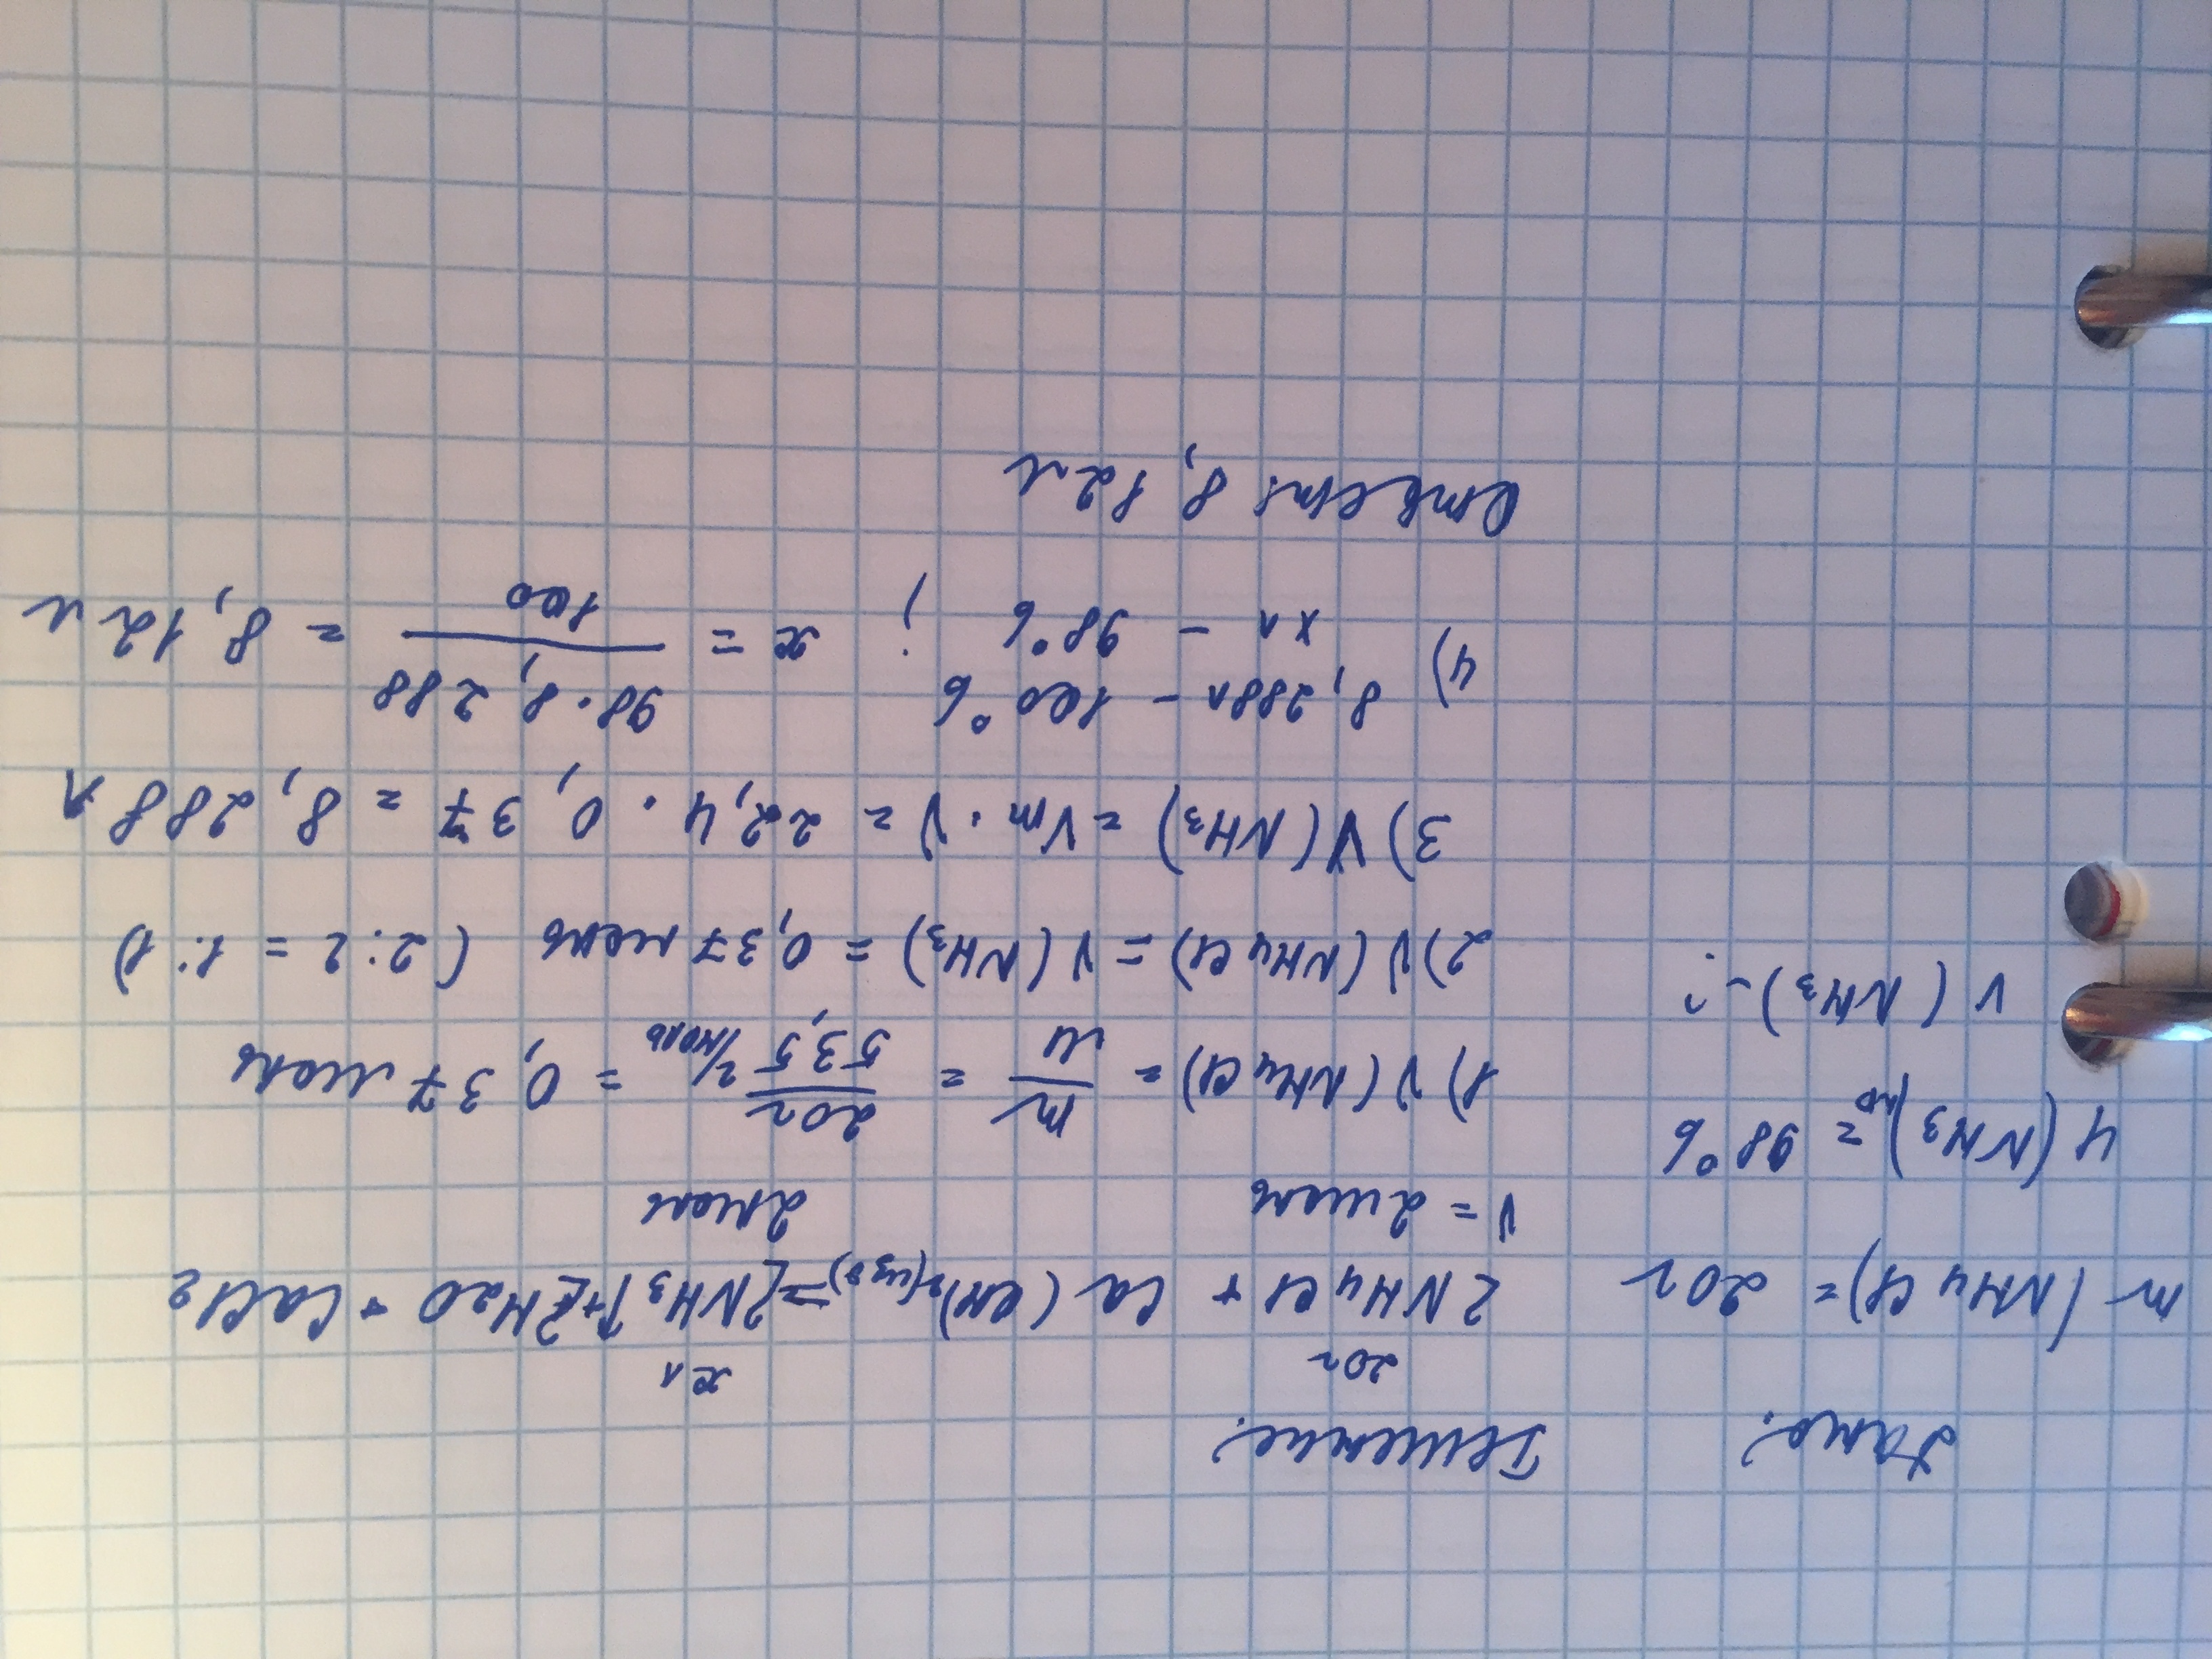 Дано:
m(NH4Cl) = 20г
φ(NH3)пр = 98%
V(NH3) - ?
Решение:
20г xл
2NH4Cl + Ca(OH)2(изб) = 2NH3↑ + 2H2O + CaCl2
ν = 2моль 2моль
1) ν(NH4Cl) = m/M = 20г/53,5 г/моль = 0,37 моль
2) ν(NH4Cl) = ν(NH3) = 0,37 моль (2:2 = 1:1)
3) V(NH3) = Vm · ν = 22,4 · 0,37 = 8,288 л
4) 8,288л - 100%
xл - 98% ; x = 98·8,288/100 = 8,12 л
Ответ: 8,12л